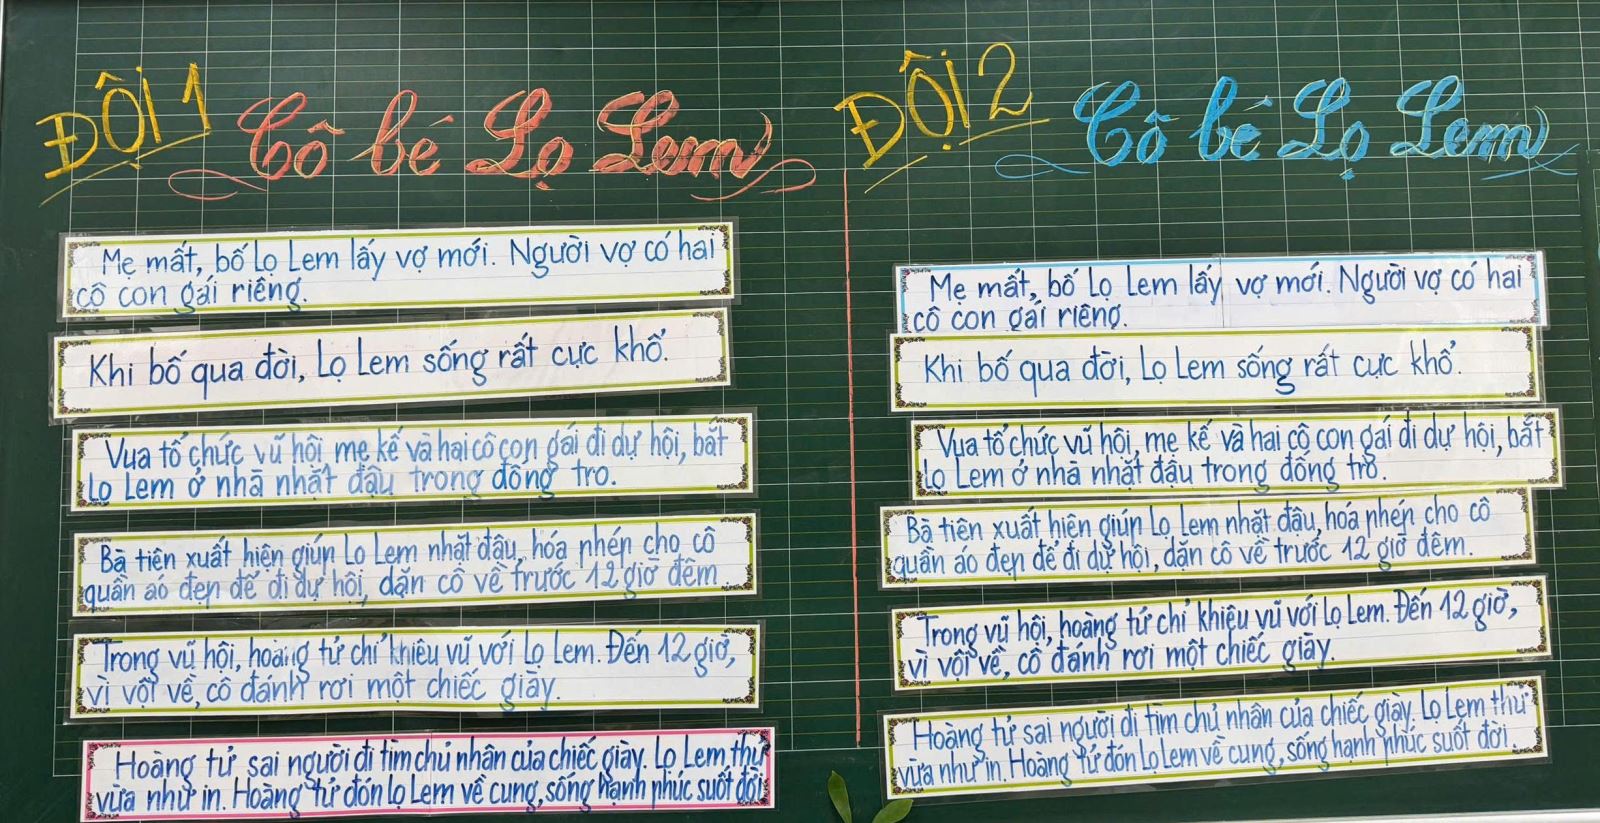 ĐỘI 1
Cô bé Lọ Lem
Mẹ mất, bố Lọ Lem lấy vợ mới. Người vợ có hai
cô con gái riêng.
Khi bố qua đời, Lọ Lem sống rất cực khổ.
Vua tổ chức vũ hội, mẹ kế và hai cô con gái đi dự hội, bắt
Lọ Lem ở nhà nhặt đậu trong đống tro.
Bà tiên xuất hiện giúp Lọ Lem nhặt đậu, hóa phép cho cô
quần áo đẹp để đi dự hội, dặn cô về trước 12 giờ đêm.
Trong vũ hội, hoàng tử chỉ khiêu vũ với Lọ Lem. Đến 12 giờ,
vì vội về, cô đánh rơi một chiếc giày.
Hoàng tử sai người đi tìm chủ nhân của chiếc giày. Lọ Lem thử
vừa như in. Hoàng tử đón Lọ Lem về cung, sống hạnh phúc suốt đời.
ĐỘI 2
Cô bé Lọ Lem
Mẹ mất, bố Lọ Lem lấy vợ mới. Người vợ có hai
cô con gái riêng.
Khi bố qua đời, Lọ Lem sống rất cực khổ.
Vua tổ chức vũ hội, mẹ kế và hai cô con gái đi dự hội, bắt
Lọ Lem ở nhà nhặt đậu trong đống tro.
Bà tiên xuất hiện giúp Lọ Lem nhặt đậu, hóa phép cho cô
quần áo đẹp để đi dự hội, dặn cô về trước 12 giờ đêm.
Trong vũ hội, hoàng tử chỉ khiêu vũ với Lọ Lem. Đến 12 giờ,
vì vội về, cô đánh rơi một chiếc giày.
Hoàng tử sai người đi tìm chủ nhân của chiếc giày. Lọ Lem thử
vừa như in. Hoàng tử đón Lọ Lem về cung, sống hạnh phúc suốt đời.